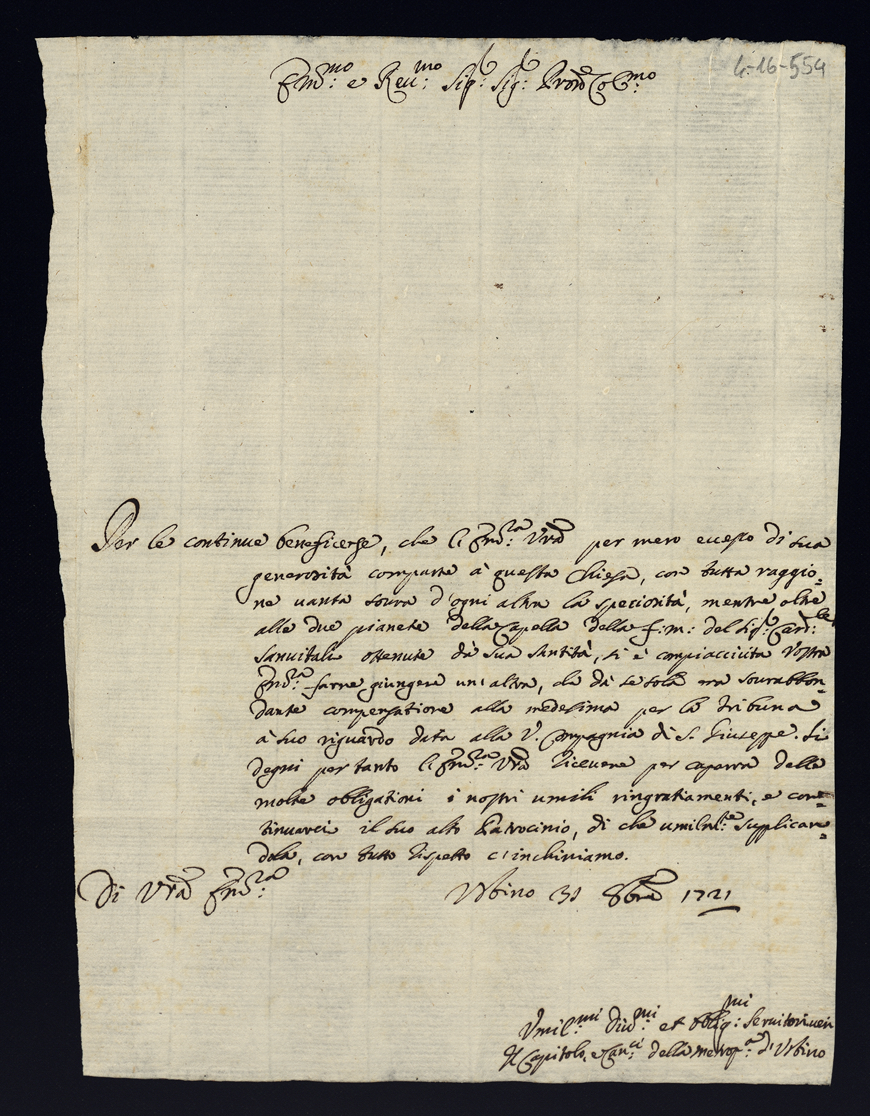 4-16-554
Em:mo e Reu:mo Sig: Sig: Pron Col:mo
Per le continue beneficenze, che l'Em:za Vra per mero eccesso di sua
generosità comparte à questa Chiesa, con tutta raggio=
ne uanta soura d'ogni altra la speciosità, mentre oltre
alle due pianete della Capella della f:m: del Sig: Card:le
Sanuitali ottenute dà Sua Santità, si è compiacciuta Vostra
Em:za farne giungere un'altra, che dà se sola era sourabbon=
dante compensatione alla medesima per la tribuna
à suo riguardo data alla V. Compagnia di S. Giuseppe. Si
degni per tanto l'Em:za Vra riceuere per caparra delle
molte obligationi i nostri umili ringratiamenti, e con=
tinuarci il suo alto Patrocinio, di che umilm:e supplican=
dola, con tutto rispetto c'inchiniamo.
Di Vra Em:za Vrbino 31 8bre 1721
Vmil:mi Diu:mi et oblig:mi Seruitori ueri
Il Capitolo, e Can:ci della metrop:na d'Vrbino